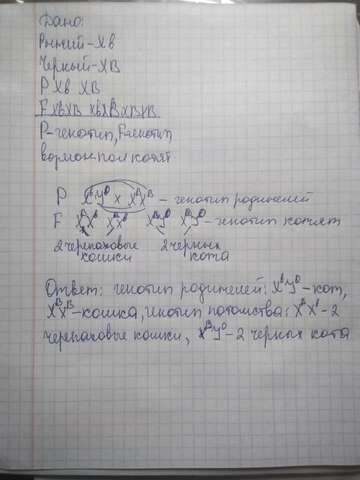 Дано:
Рыжий-Xв
Черный-XB
P Xв XB
F XвXB XвXB XBXB
P-генотип, F-генотип
возможн. пол котят
P XᵇY⁰ x XᴮXᴮ - генотип родителей
F XᴮXᵇ XᴮXᵇ XᴮY⁰ XᴮY⁰ - генотип котят
2 черепаховые 2 черных
кошки кота
Ответ: генотип родителей: XᵇY⁰-кот,
XᴮXᴮ-кошка, генотип потомства: XᴮXᵇ-2
черепаховые кошки, XᴮY⁰-2 черных кота